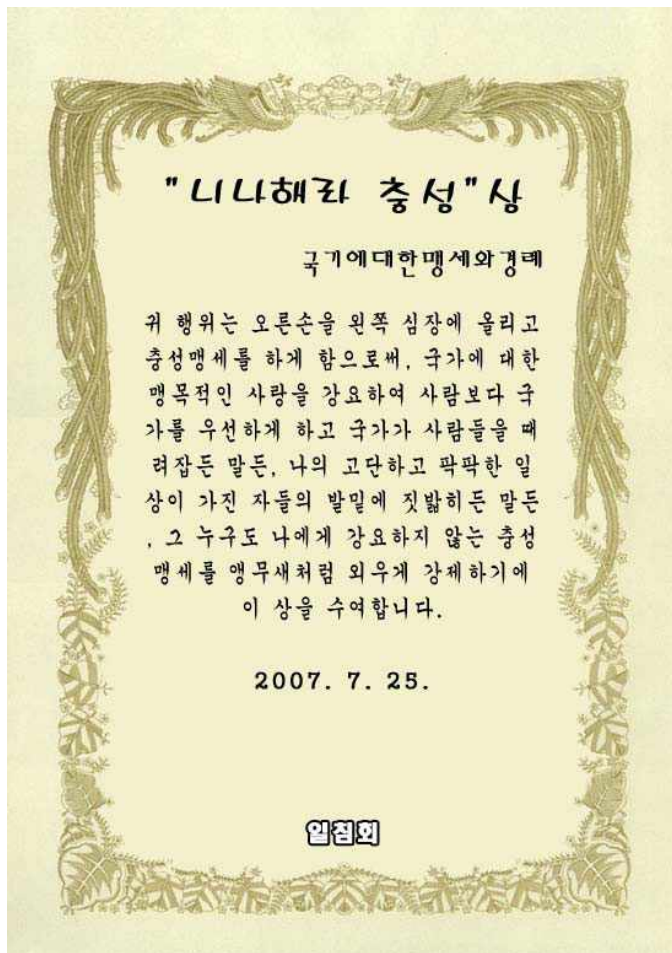 "니나해라 충성"상
국기에대한맹세와경례
귀 행위는 오른손을 왼쪽 심장에 올리고
충성맹세를 하게 함으로써, 국가에 대한
맹목적인 사랑을 강요하여 사람보다 국
가를 우선하게 하고 국가가 사람들을 때
려잡든 말든, 나의 고단하고 팍팍한 일
상이 가진 자들의 발밑에 짓밟히든 말든
, 그 누구도 나에게 강요하지 않는 충성
맹세를 앵무새처럼 외우게 강제하기에
이 상을 수여합니다.
2007. 7. 25.
일침회